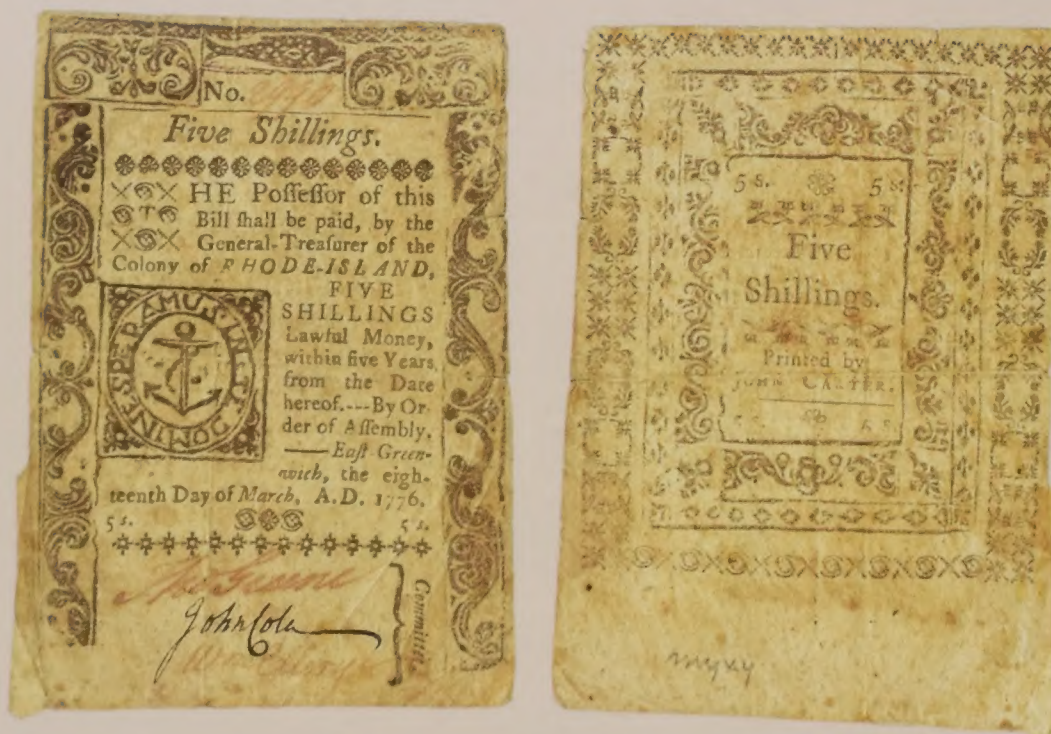 No.
Five Shillings.
THE Poſſeſſor of this
Bill ſhall be paid, by the
General-Treaſurer of the
Colony of RHODE-ISLAND,
FIVE
SHILLINGS
Lawful Money,
within five Years
from the Date
hereof.---By Or-
der of Aſſembly.
—Eaſt Green-
wich, the eigh-
teenth Day of March, A.D. 1776.
5 s. 5 s.
IN TE DOMINE SPERAMUS
John Cole
Committee.
5 s. 5 s.
Five
Shillings.
Printed by
JOHN CARTER.
5 s. 5 s.